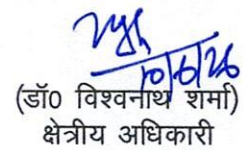 10/6/26
(डॉ0 विश्वनाथ शर्मा)
क्षेत्रीय अधिकारी